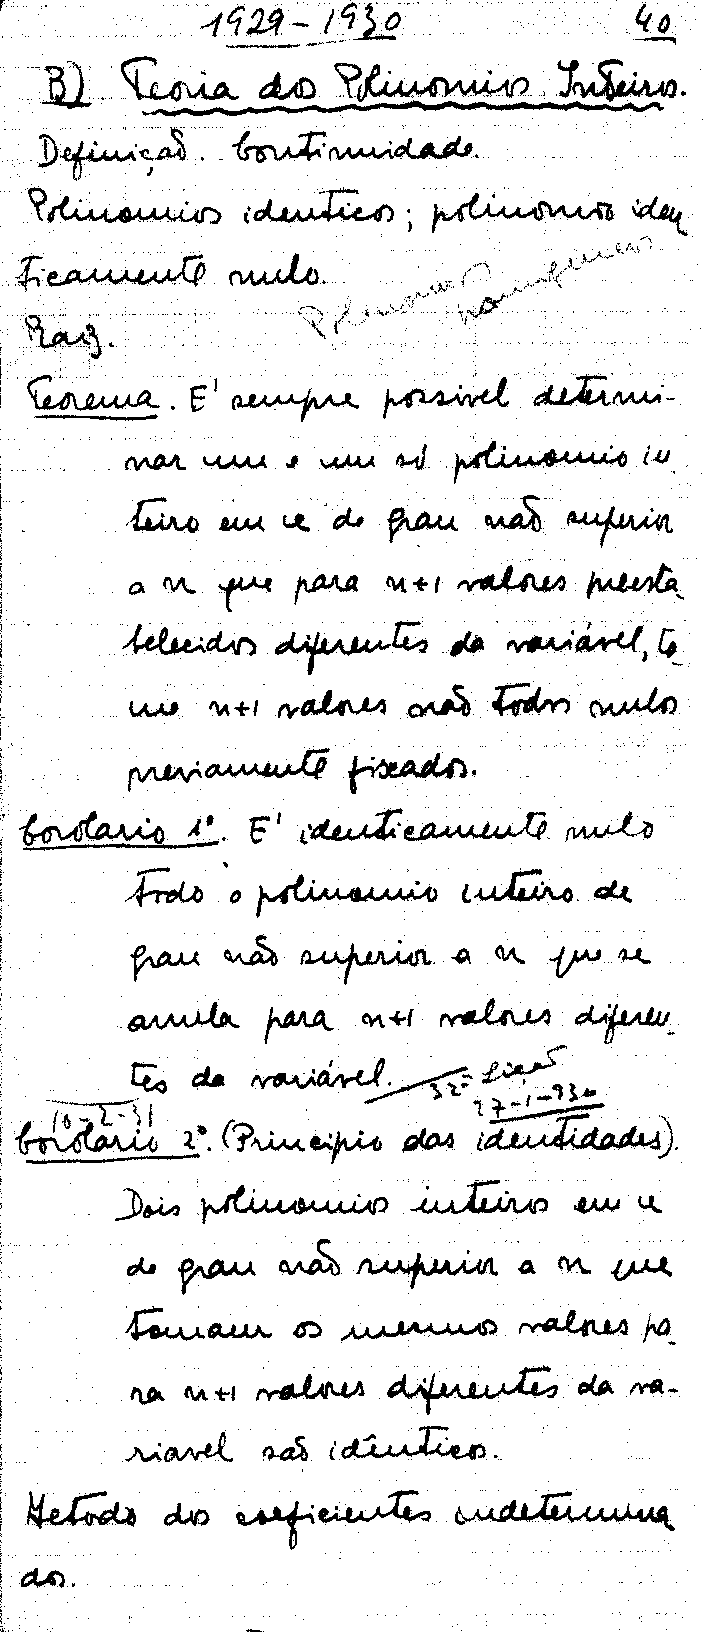 1929-1930 40
B) Teoria dos Polinomios Inteiros.
Definição. Continuidade.
Polinomios identicos; polinomio iden
ticamente nulo.
Polinomios homogeneos
Raiz.
Teorema. E' sempre possivel determi-
nar um e um só polinomio in
teiro em x de grau não superior
a n que para n+1 valores preesta
belecidos diferentes da variável, to
me n+1 valores não todos nulos
previamente fixados.
Corolario 1º. E' identicamente nulo
todo o polinomio inteiro de
grau não superior a n que se
anula para n+1 valores diferen
tes da variável. 32ª Lição
10-2-31 27-1-930
Corolario 2º. (Principio das identidades).
Dois polinomios inteiros em x
de grau não superior a n que
tomam os mesmos valores pa
ra n+1 valores diferentes da va-
riavel são idênticos.
Metodo dos coeficientes indetermina
dos.